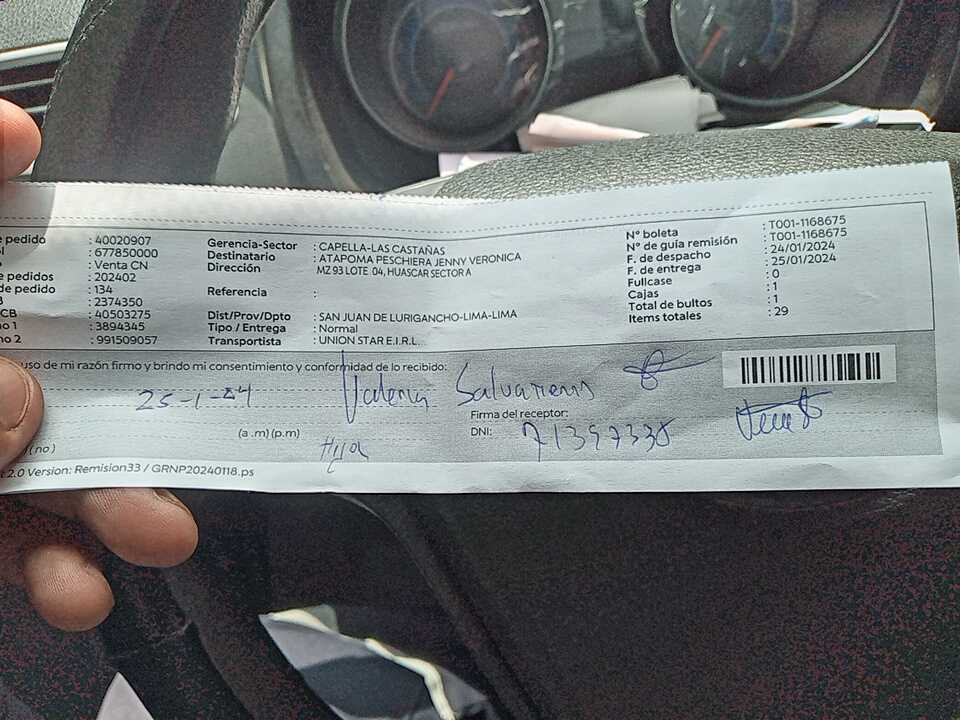 e pedido : 40020907
: 677850000
: Venta CN
e pedidos : 202402
de pedido : 134
: 2374350
CB : 40503275
no 1 : 3894345
no 2 : 991509057
Gerencia-Sector : CAPELLA-LAS CASTAÑAS
Destinatario : ATAPOMA PESCHIERA JENNY VERONICA
Dirección MZ 93 LOTE 04, HUASCAR SECTOR A
Referencia :
Dist/Prov/Dpto : SAN JUAN DE LURIGANCHO-LIMA-LIMA
Tipo / Entrega : Normal
Transportista : UNION STAR E.I.R.L.
N° boleta : T001-1168675
N° de guía remisión : T001-1168675
F. de despacho : 24/01/2024
F. de entrega : 25/01/2024
Fullcase : 0
Cajas : 1
Total de bultos : 1
Items totales : 29
uso de mi razón firmo y brindo mi consentimiento y conformidad de lo recibido:
25-1-24 Valeria
Firma del receptor:
(a .m) (p.m) Hija DNI: 71397338
(no)
2.0 Version: Remision33 / GRNP20240118.ps